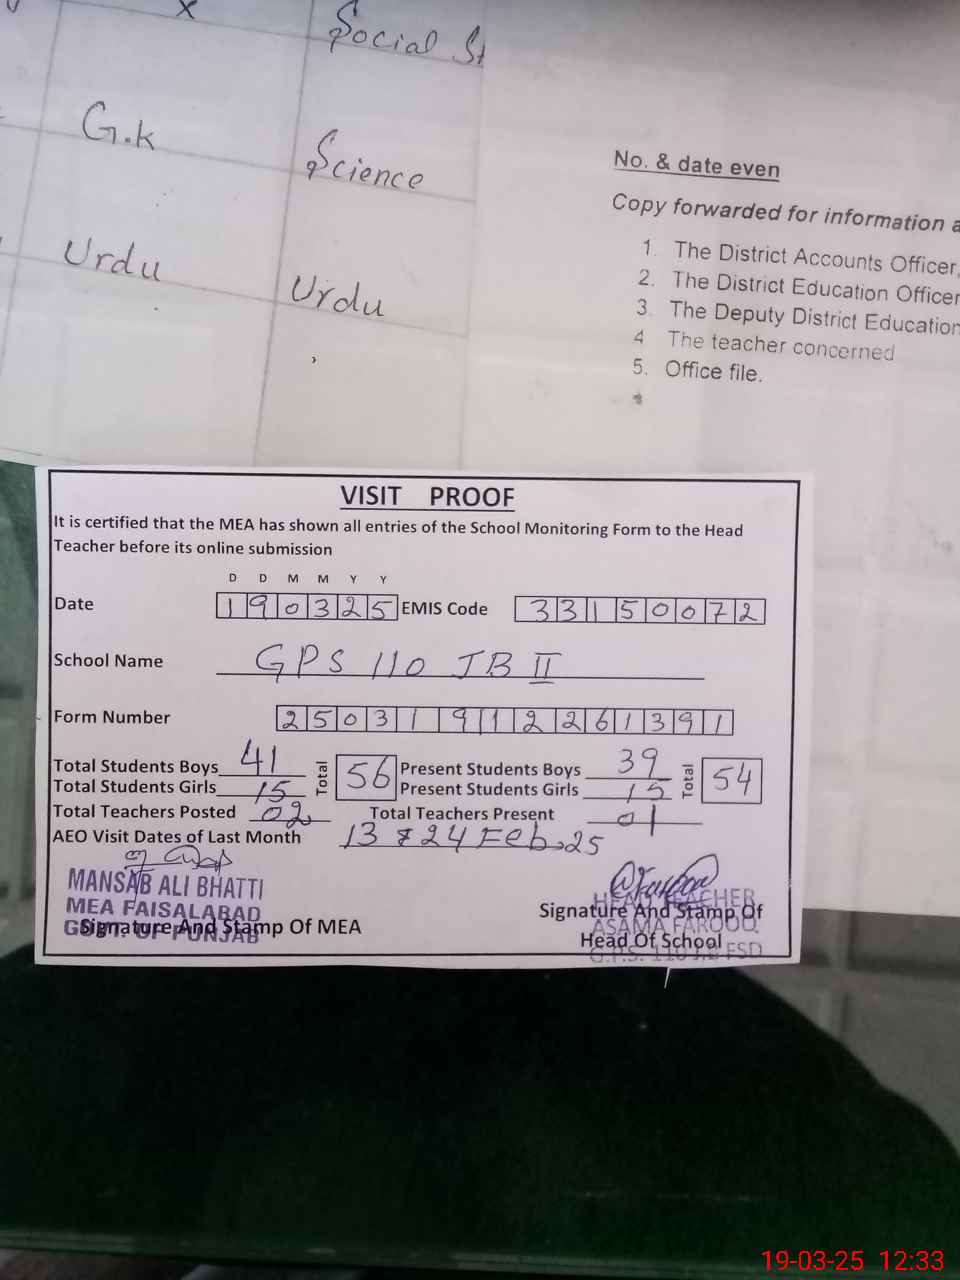 x
Social St
G.K
Science
Urdu
Urdu
No. & date even
Copy forwarded for information a
1. The District Accounts Officer,
2. The District Education Officer
3. The Deputy District Education
4 The teacher concerned
5. Office file.
VISIT PROOF
It is certified that the MEA has shown all entries of the School Monitoring Form to the Head
Teacher before its online submission
D D M M Y Y
Date 190325 EMIS Code 33150072
School Name GPS 110 JB II
Form Number 25031912261391
Total Students Boys 41 Total 56 Present Students Boys 39 Total 54
Total Students Girls 15 Present Students Girls 15
Total Teachers Posted 02 Total Teachers Present 01
AEO Visit Dates of Last Month 13 & 24 Feb.25
MANSAB ALI BHATTI
MEA FAISALABAD
GOVT. OF PUNJAB
Signature And Stamp Of MEA
HEAD TEACHER
Signature And Stamp Of
ASAMA FAROOQ
Head Of School
G.P.S. 110 J.B FSD
19-03-25 12:33